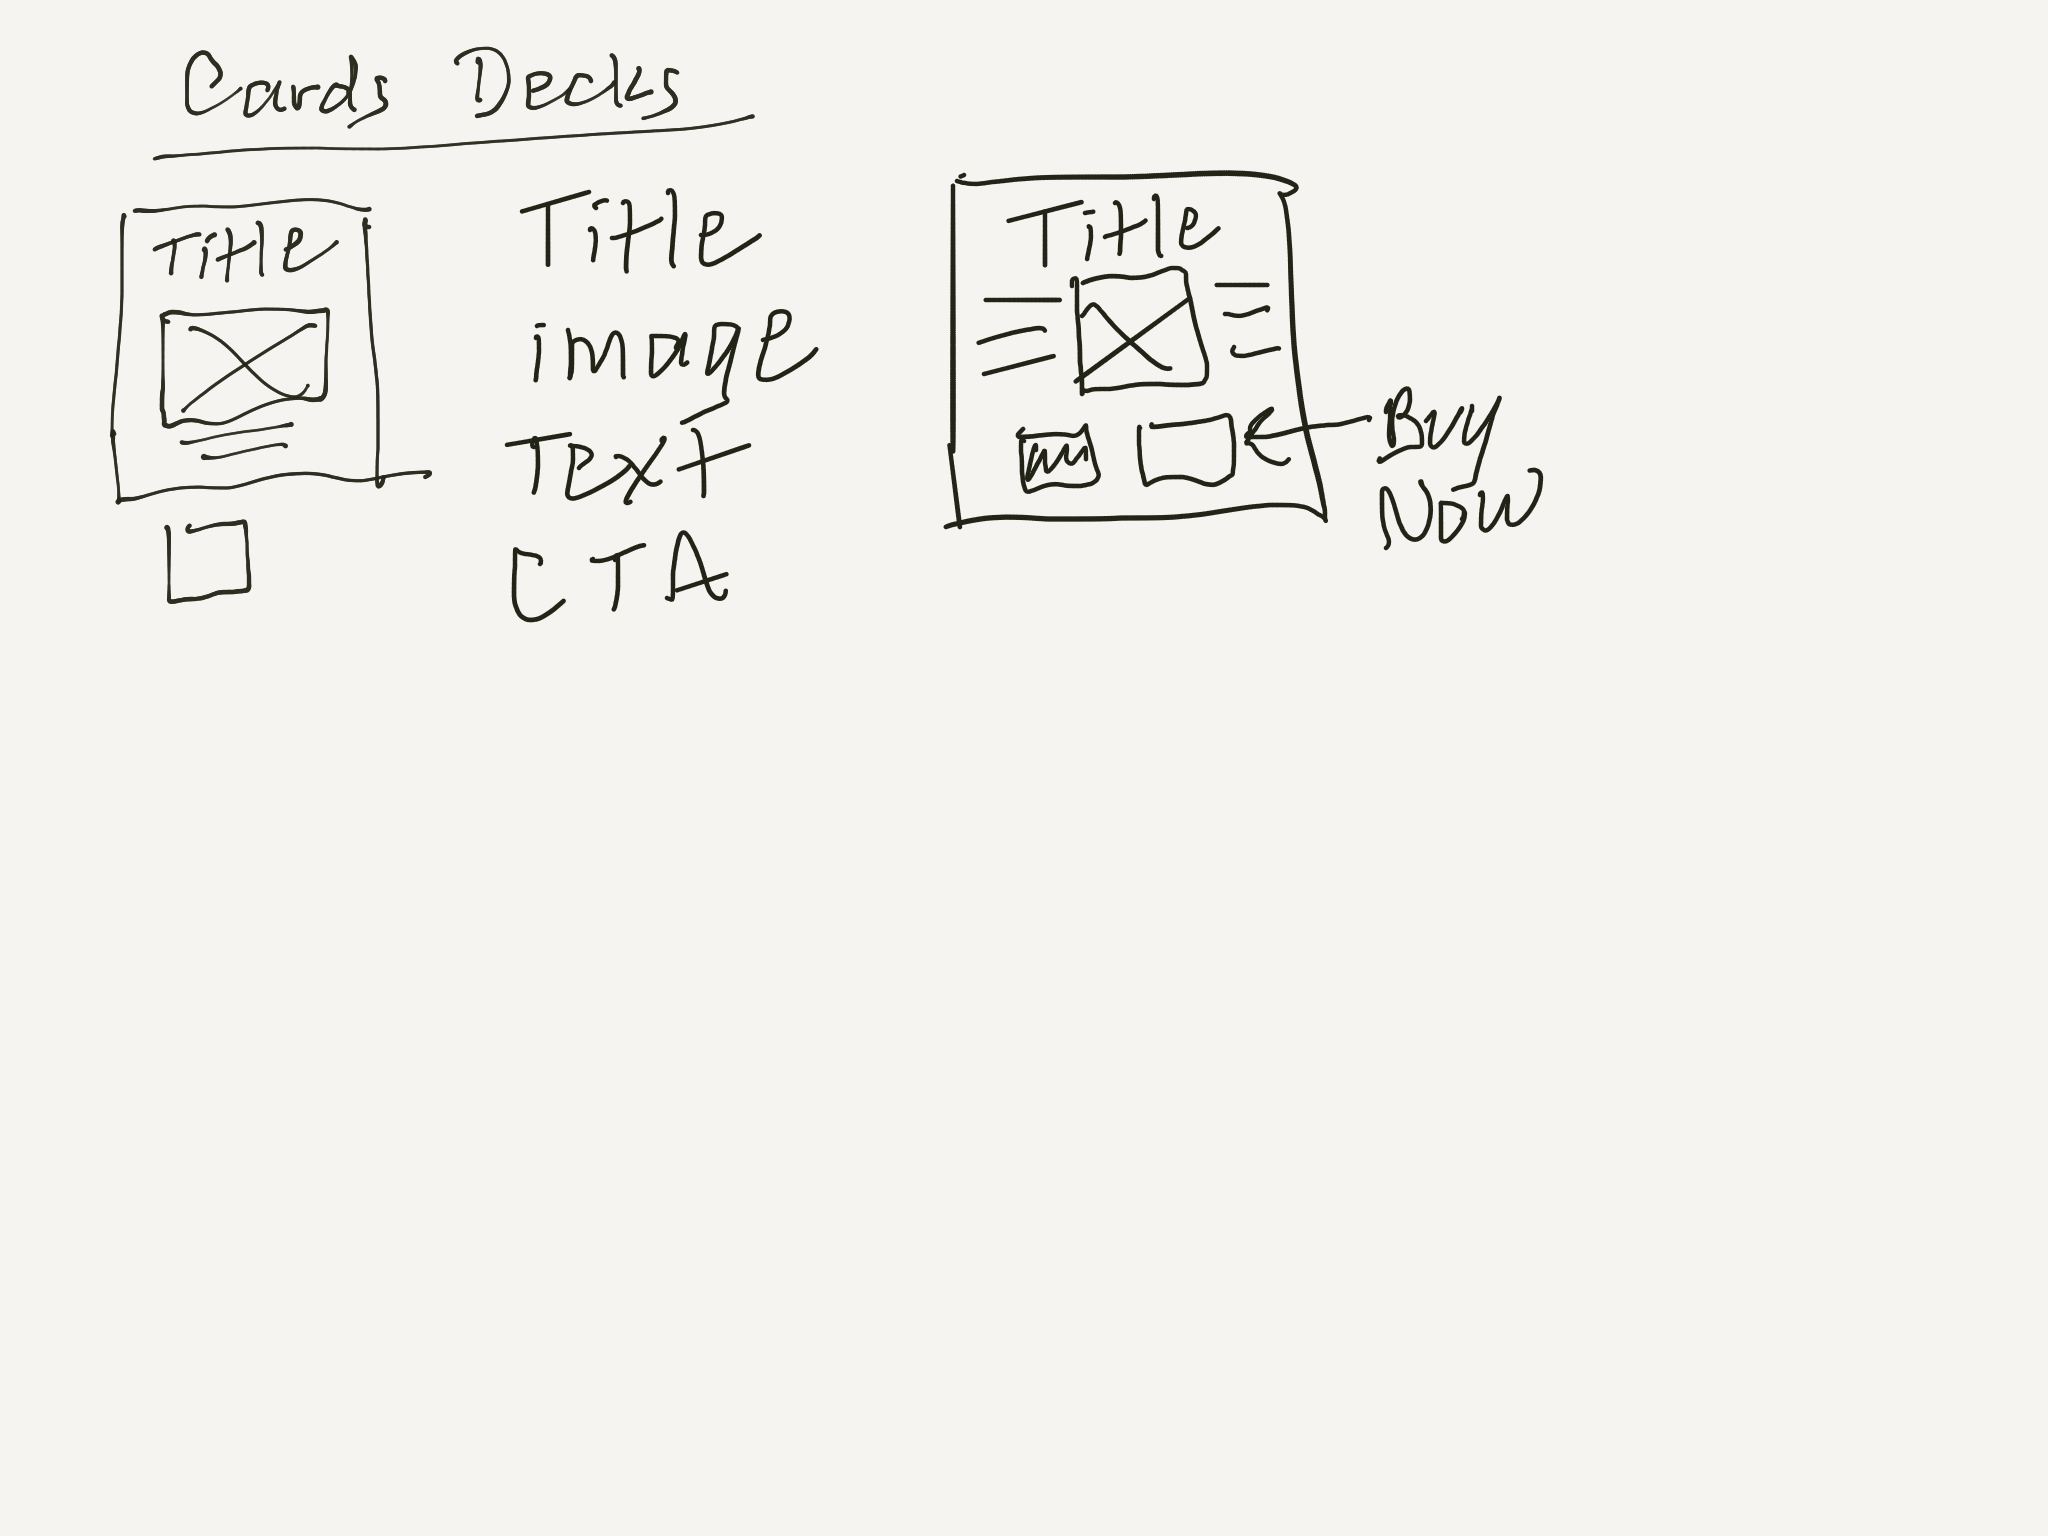 Cards Decks
Title
Title
image
Text
CTA
Title
Buy
Now